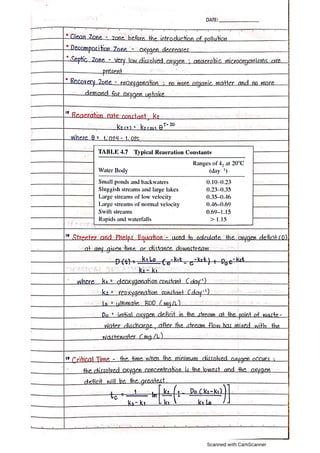 DATE:
* Clean Zone - zone before the introduction of pollution
* Decomposition Zone - oxygen decreases
* Septic Zone - very low dissolved oxygen ; anaerobic microorganisms are
present
* Recovery Zone - reoxygenation ; no more organic matter and no more
demand for oxygen uptake
Reaeration rate constant, k₂
k₂(T) = k₂(20) θ^T-20
where θ = 1.024 -
TABLE 4.7 Typical Reaeration Constants
Water Body Ranges of k₂ at 20°C (day⁻¹)
Small ponds and backwaters 0.10–0.23
Sluggish streams and large lakes 0.23–0.35
Large streams of low velocity 0.35–0.46
Large streams of normal velocity 0.46–0.69
Swift streams 0.69–1.15
Rapids and waterfalls > 1.15
Streeter and Phelps Equation - used to calculate the oxygen deficit (D)
at any given time or distance downstream
D(t) = k₁L₀ / k₂-k₁ (e^-k₁t - e^-k₂t) + D₀e^-k₂t
where k₁ = deoxygenation constant (day⁻¹)
k₂ = reoxygenation constant (day⁻¹)
L₀ = ultimate BOD (mg/L)
D₀ = initial oxygen deficit in the stream at the point of waste-
water discharge, after the stream flow has mixed with the
wastewater (mg/L)
Critical Time - the time when the minimum dissolved oxygen occurs ;
the dissolved oxygen concentration is the lowest and the oxygen
deficit will be the greatest
t_c = 1 / k₂-k₁ ln [ k₂/k₁ ( 1 - D₀(k₂-k₁) / k₁L₀ ) ]
Scanned with CamScanner